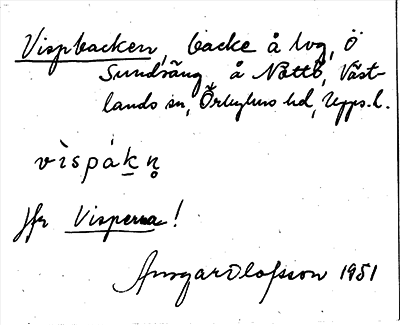 Vispbacken, backe å bog, ö
Sundsäng, å Nåttö, Väst-
lands sn, Örbyhus hd, Upps. l.
vìspák̠n̥
Jfr Visperna!
Ansgar Olofsson 1951